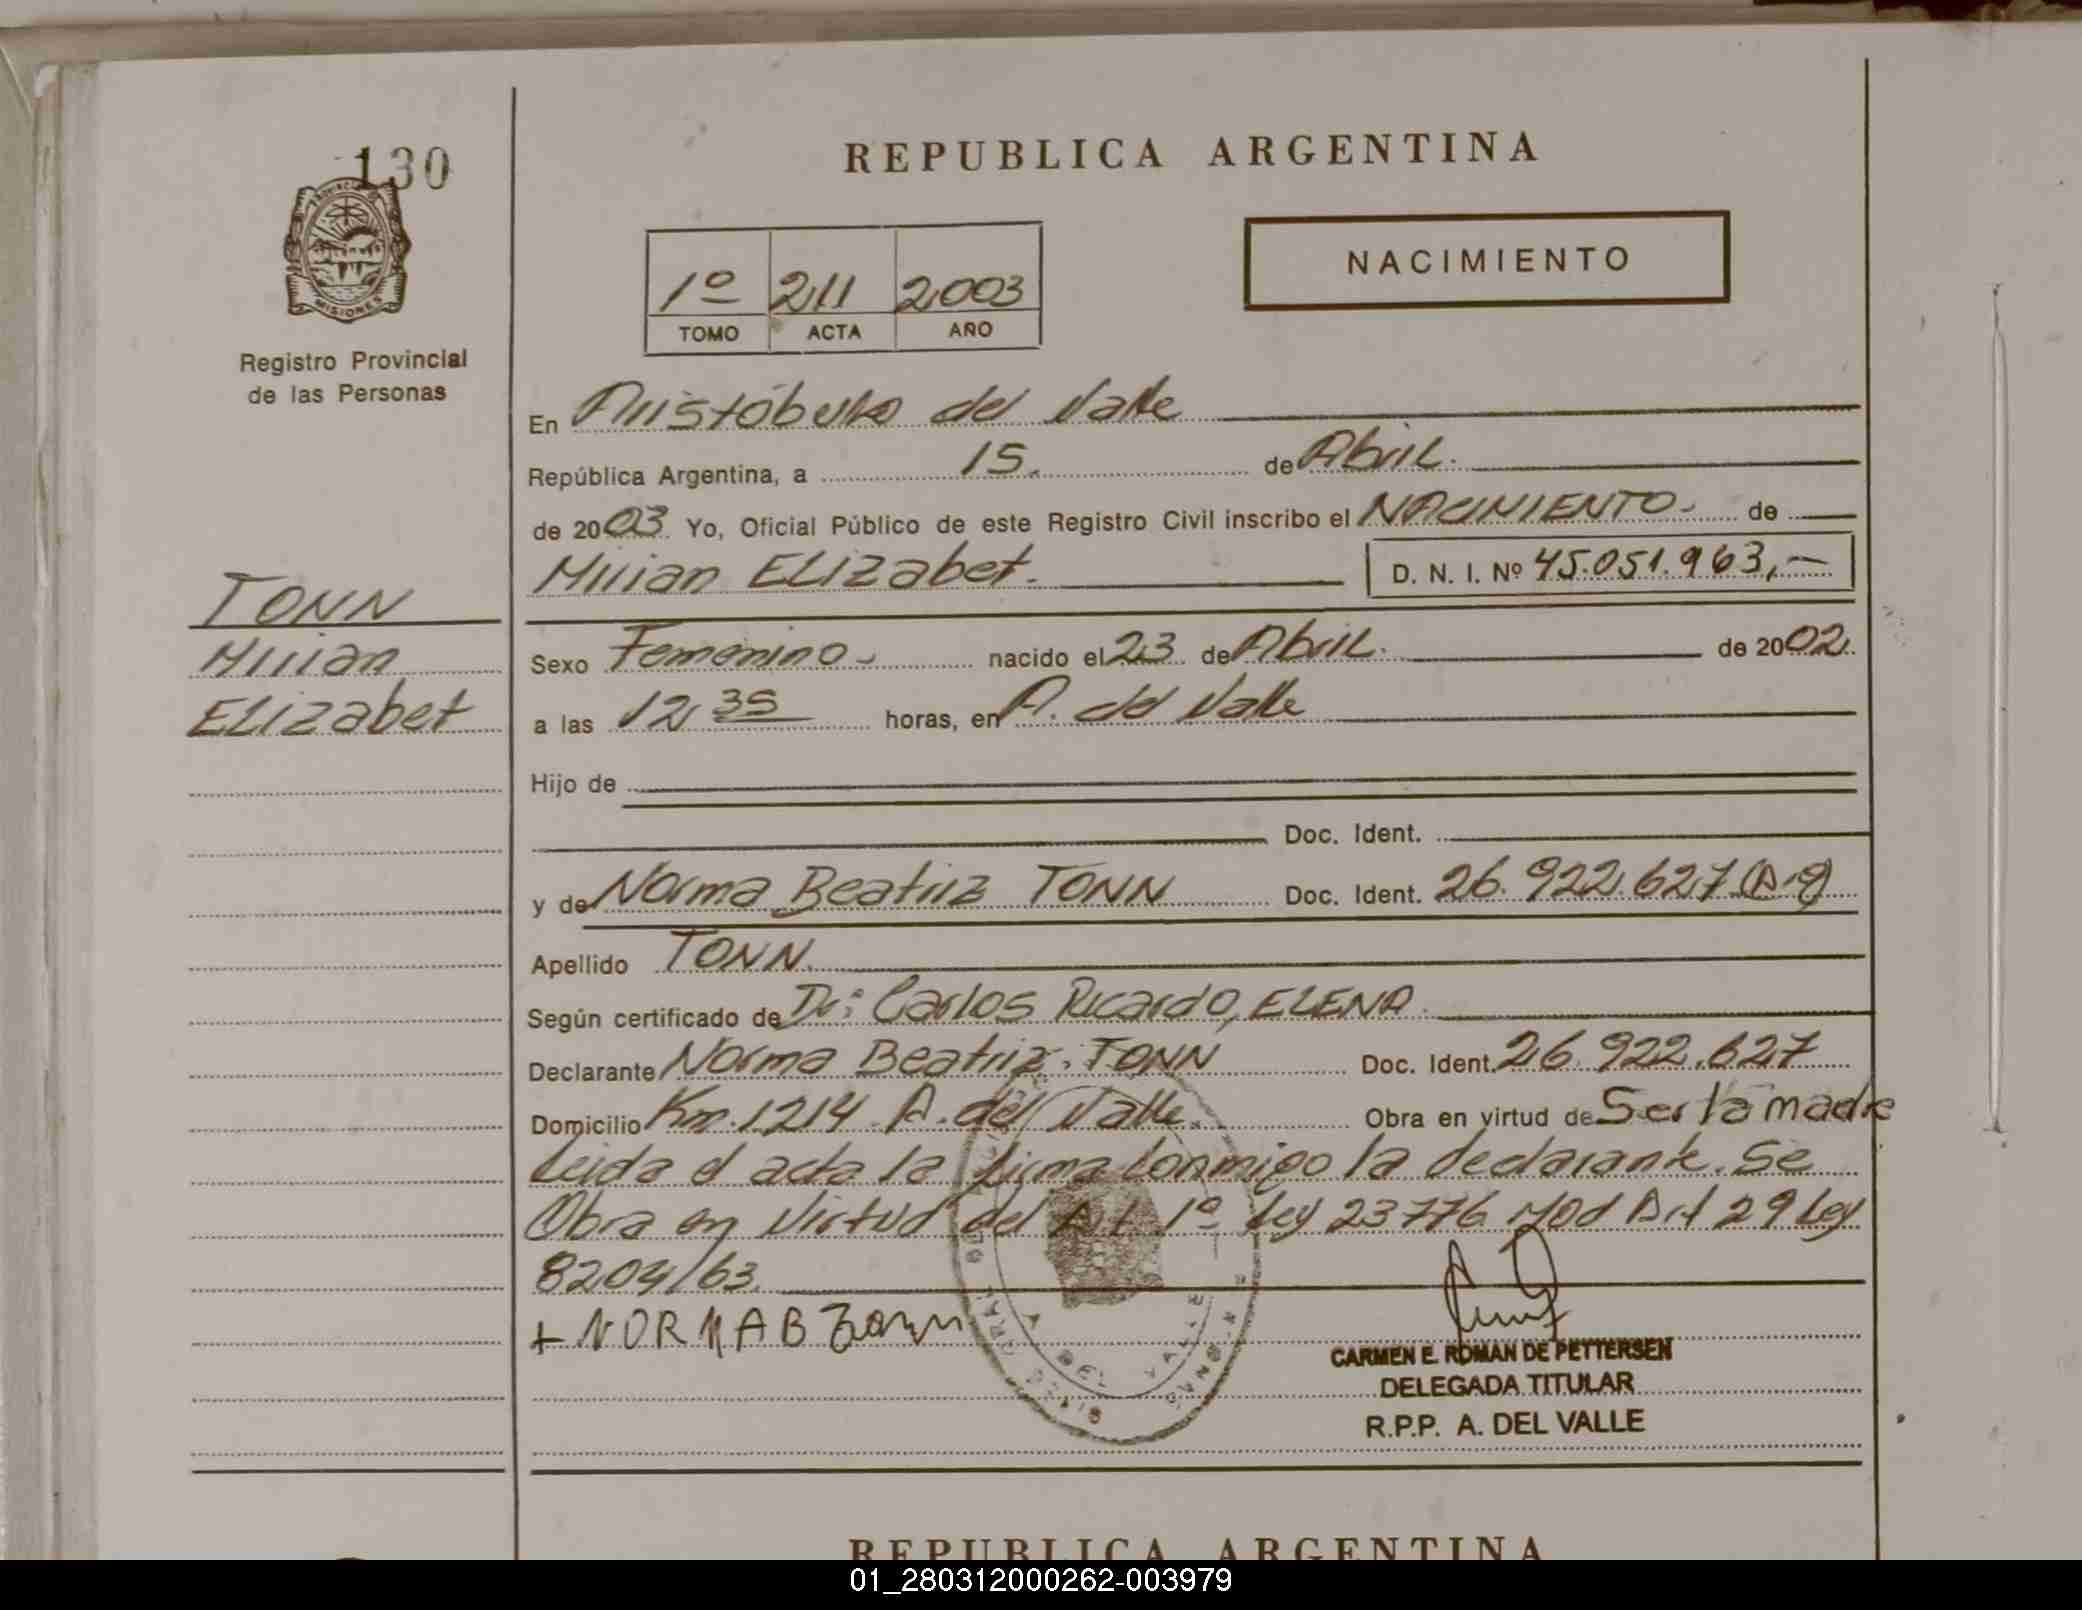 130
PROVINCIA
MISIONES
Registro Provincial
de las Personas
REPUBLICA ARGENTINA
NACIMIENTO
1º 211 2003
TOMO ACTA AÑO
En Aristóbulo del Valle
República Argentina, a 15. de Abril.
de 2003 Yo, Oficial Público de este Registro Civil inscribo el NACIMIENTO. de
Mirian ELizabet. D. N. I. Nº 45.051.963,-
TONN
Mirian
ELizabet
Sexo Femenino nacido el 23 de Abril. de 2002.
a las 12,35 horas, en A. del Valle
Hijo de
Doc. Ident.
y de Norma Beatriz TONN Doc. Ident. 26.922.627 Arg
Apellido TONN.
Según certificado de Dr: Carlos Ricardo, ELENA
Declarante Norma Beatriz. TONN Doc. Ident. 26.922.627
Domicilio Km.1214 A. del Valle. Obra en virtud de Ser la madre
Leida el acta la firma conmigo la declarante. Se
Obra en virtud del Art 1º Ley 23776 Mod Art 29 Ley
8204/63.
+ NORMA B Tonn
CARMEN E. ROMAN DE PETTERSEN
DELEGADA TITULAR
R.P.P. A. DEL VALLE
REPUBLICA ARGENTINA
01_280312000262-003979